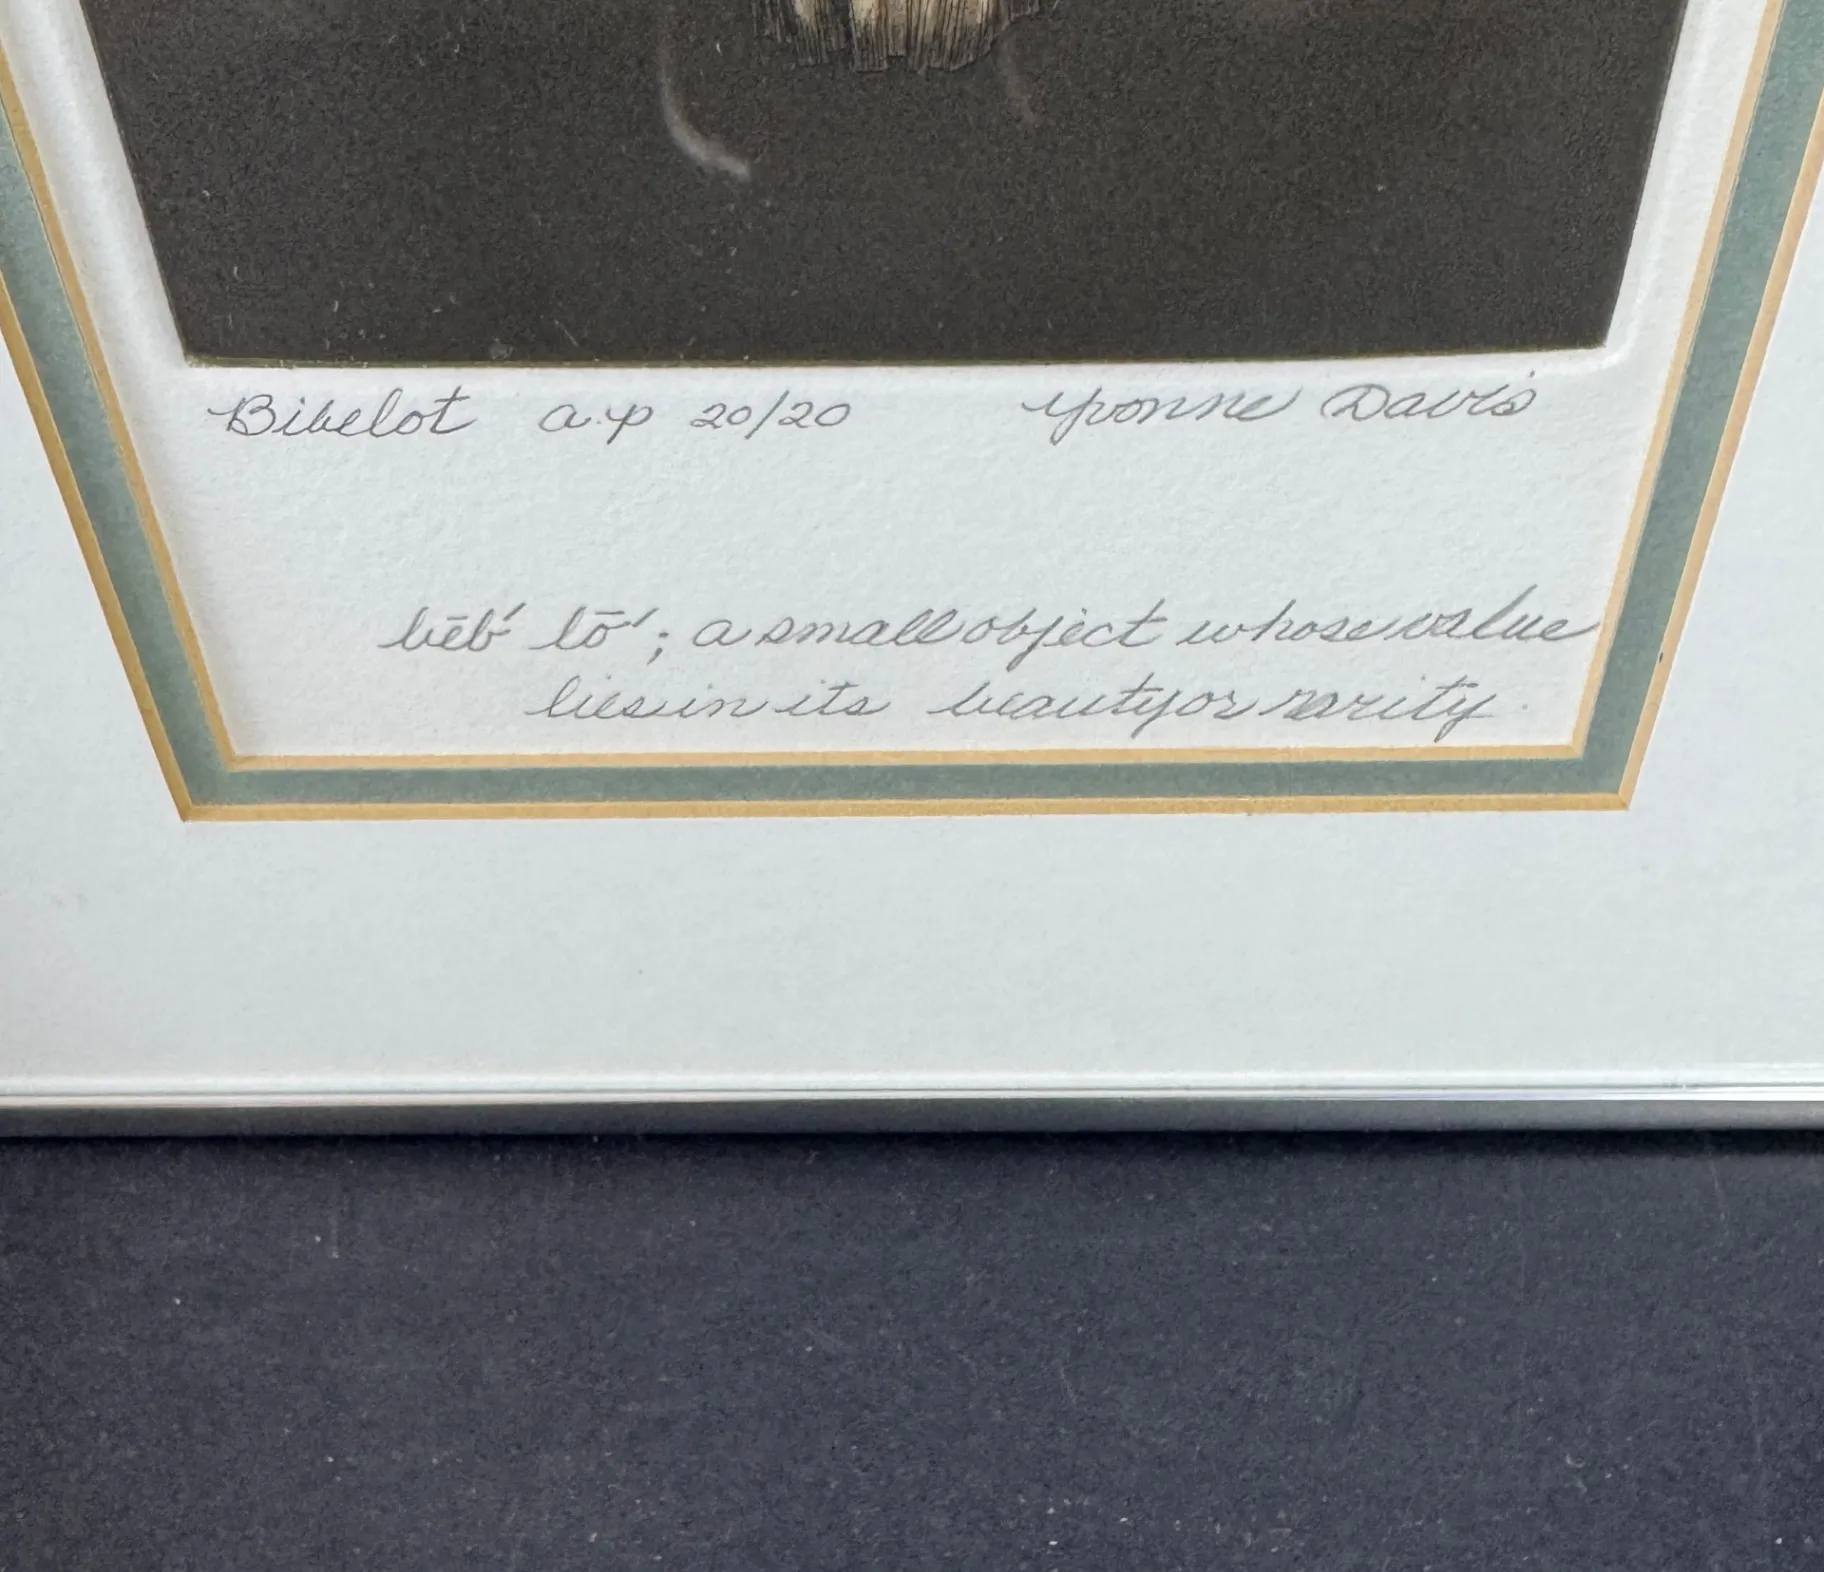 Bibelot a.p 20/20 Yvonne Davis
bēb' lō'; a small object whose value
lies in its beauty or rarity.